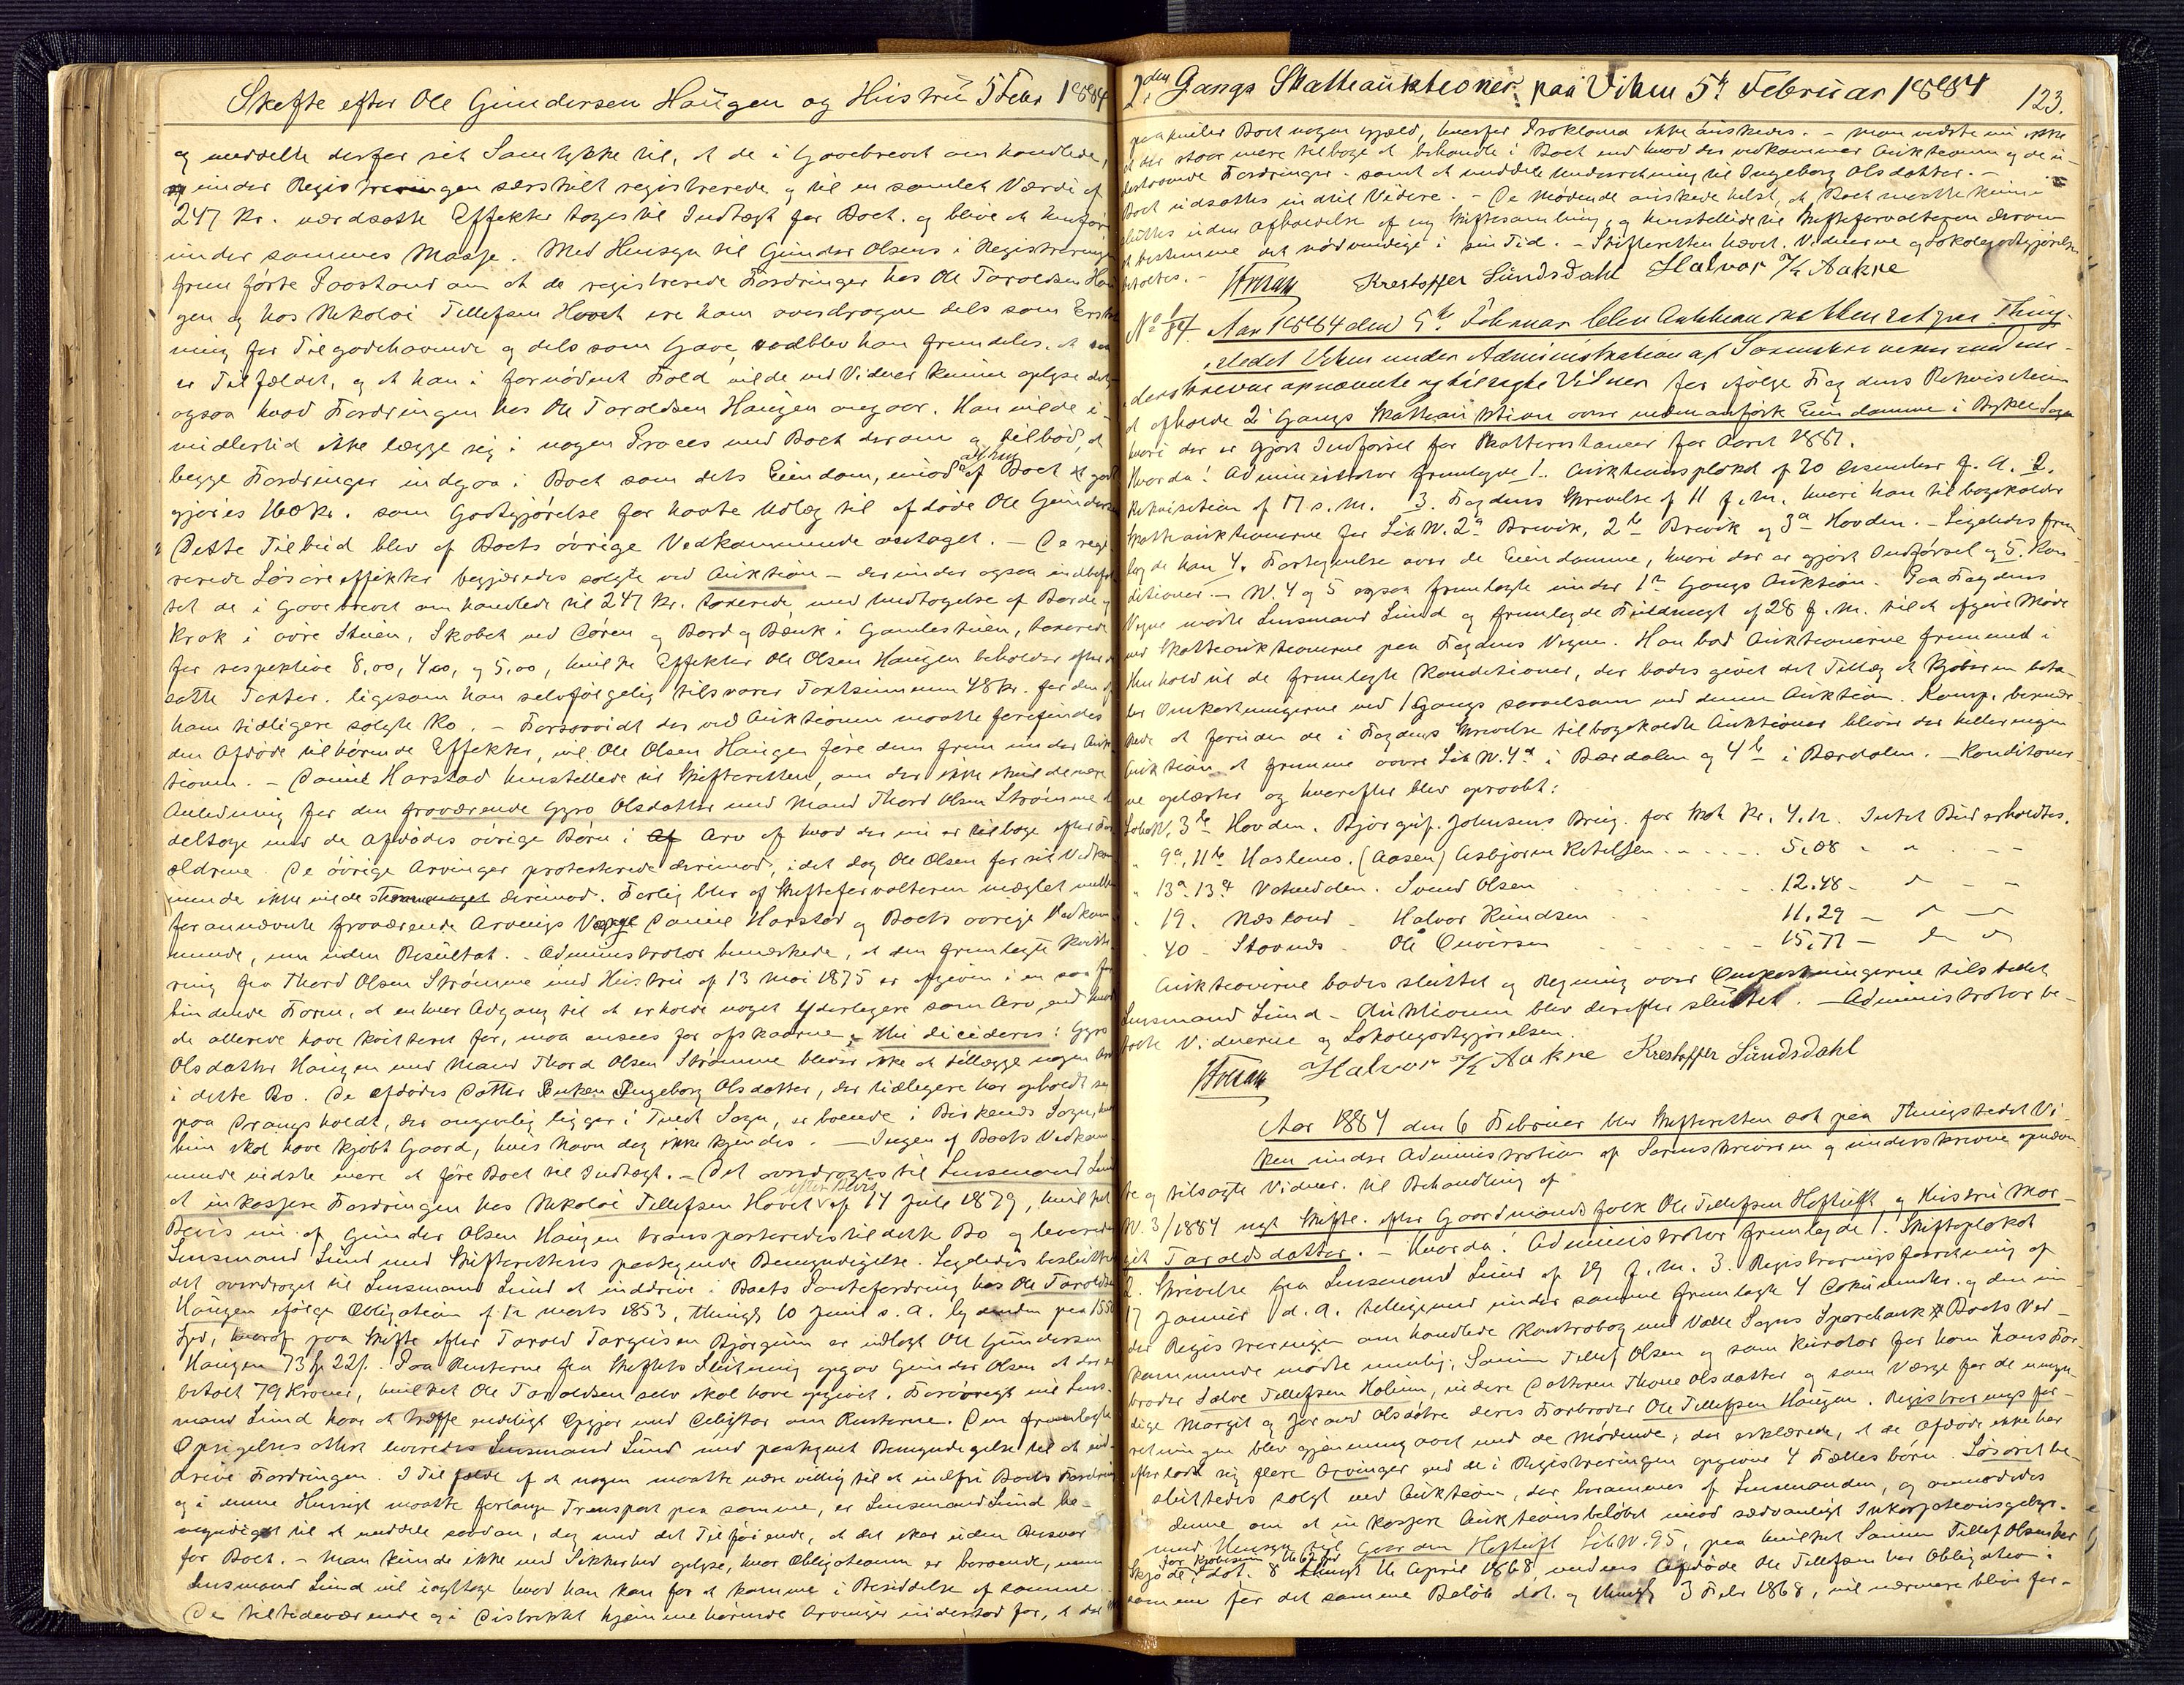 Skifte efter Ole Gundersen Haugen og Hustru 5 Febr 1884
og meddelte derfor sit Samtykke til, at de i Gavebrevet om handlede,
under Registreringen særskilt registrerede og til en samlet Værdi af
247 Kr. værdsatte Effekter toges til Indtægt for Boet og blive at henføre
under sammes Masse. Med Hensyn til Gunder Olsens i Registreringen
frem førte Paastand om at de registrerede Fordringer hos Ole Taroldsen Hau
gen og hos Nikolai Tellefsen Hovet ere ham overdragne dels som Erstat
ning for Tilgodehavende og dels som Gave, vedblev han fremdeles, at
er Tilfældet, og at han i fornødent Fald vilde ved Vidner kunne oplyse det
ogsaa hvad Fordringen hos Ole Taroldsen Haugen angaar. Han vilde i-
midlertid ikke lægge sig i nogen Proces med Boet derom og tilbød, at
begge Fordringer indgaa i Boet som dets Eiendom, imod af Boet godt
gjøres 160 Kr. som Godtgjørelse for havte Udlæg til afdøde Ole Gundersen
Dette Tilbud blev af Boets øvrige Vedkommende antaget. – De regi-
srerede Løsøreeffekter begjæredes solgte ved Auktion – derunder ogsaa indbefat
tet de i Gavebrevet om handlede til 247 Kr. taxerede, med Undtagelse af Borde og
Krak i øvre Stuen, Skabet ved Døren og Bord og Bænk i Gamlestuen, taxerede
for respektive 8,00, 4,00, og 5,00, hvilke Effekter Ole Olsen Haugen beholder efter
satte Taxter. ligesom han selvfølgelig tilsvarer Taxtsummen 48 Kr. for den af
ham tidligere solgte Ko. – Forsaavidt der ved Auktionen maatte forefindes
den Afdøde tilhørende Effekter, vil Ole Olsen Haugen føre dem frem under Auk
tionen. – Daniel Harstad henstillede til Skifteretten, om der ikke skulde være
Anledning for den fraværende Gyro Olsdatter med Mand Thord Olsen Strømme at
deltage med de Afdødes øvrige Børn i Arv af hvad der nu er tilbage efter For
ældrene. De øvrige Arvinger protesterede derimod, idet dog Ole Olsen for sit Vedkom
mende ikke vilde derimod. Forlig blev af Skifteforvalteren mæglet mellem
forannævnte fraværende Arvings Værge Daniel Harstad og Boets øvrige Vedkom
mende, men uden Resultat. – Administrator bemærkede, at den fremlagte Kvitte
ring fra Thord Olsen Strømme med Hustru af 13 Mai 1875 er afgiven i en saa for
bindende Form, at enhver Adgang til at erholde noget Yderligere som Arv, end hvad
de allerede have kvitteret for, maa ansees for afskaaren. Thi decideres: Gyro
Olsdatter Haugen med Mand Thord Olsen Strømme bliver ikke at tillægge nogen Arv
i dette Bo. De afdødes Datter Enken Ingeborg Olsdatter, der tidligere har opholdt sig
paa Drangsholdt, der angivelig ligger i Tveit Sogn, er boende i Birkenes Sogn, hvor
hun skal have kjøbt Gaard, hvis Navn dog ikke kjendes. – Ingen af Boets Vedkom
mende vidste mere at føre Boet til Indtægt. – Det overdroges til Lensmand Lund
efter Bevis
at inkassere Fordringen hos Nikolai Tellefsen Hovet af 14 Juli 1879, hvilket
Bevis nu af Gunder Olsen Haugen transporteredes til dette Bo og leveredes
Lensmand Lund med Skifterettens paategnede Bemyndigelse. Ligeledes besluttedes
det overdraget til Lensmand Lund at inddrive Boets Pantefordring hos Ole Taroldsen
Haugen ifølge Obligation af 12 Marts 1853, thingl. 10 Juni s. A. lydende paa 155
Spd, hvoraf paa Skifte efter Tarold Targeisen Bjørgum er udlagt Ole Gundersen
Haugen 73 22. Paa Renterne fra Skiftets Slutning opgav Gunder Olsen at der er
betalt 79 Kroner, hvilket Ole Taroldsen selv skal have opgivet. Forøvrigt vil Lens-
mand Lund have at træffe endeligt Opgjør med Debitor om Renterne. Den fremlagte
Opsigelses Akt leveredes Lensmand Lund med paategnet Bemyndigelse til at ind-
drive Fordringen. I Tilfælde af at nogen maatte være villig til at indfri Boets Fordring
og i denne Hensigt maatte forlange Transport paa samme, er Lensmand Lund be-
myndiget til at meddele saadan, dog med det Tilføiende, at det sker uden Ansvar
for Boet. – Man kunde ikke med Sikkerhed oplyse, hvor Obligationen er beroende, men
Lensmand Lund vil iagttage hvad han kan for at komme i Besiddelse af samme.
De tilstedeværende og i Distriktet hjemmehørende Arvinger indestod for, at det
2den Gangs Skatteauktioner paa Viken 5te Februar 1884 123.
paahviler Boet nogen Gjæld, hvorfor Proklama ikke ønskedes. – Man vidste nu ikke
at der staar mere tilbage at behandle i Boet end hvad der vedkommer Auktionen og de u-
destaaende Fordringer, samt at meddele Underretning til Ingeborg Olsdatter. –
Boet udsattes indtil Videre. – De Mødende ønskede helst, at Boet maatte kunne
sluttes uden Afholdelse af ny Skiftesamling, og henstillede til Skifteforvalteren derom
at bestemme det nødvendige i sin Tid. – Skifteretten hævet. Vidnerne og Lokalegodtgjørelse
betaltes. –
Krestoffer Sundsdahl Halvor Aakre
No 1/84. Aar 1884 den 5te Februar blev Auktionsretten sat paa Thing-
stedet Viken under Administration af Sorenskriveren med un-
derskrevne opnævnte og tilsagte Vidner for ifølge Fogdens Rekvisition
at afholde 2' Gangs Skatteauktion over nedenanførte Eiendomme i Bykle Sogn
hvori der er gjort Indførsel for Skatterestancer for Aaret 1881.
Hvorda! Administrator fremlagde 1. Auktionsplakat af 20 December f. A. 2.
Rekvisition af 17 s. M. 3. Fogdens Skrivelse af 11 f. M. hvori han tilbagekalder
Skatteauktionerne for Løb No. 2a Breivik, 2b Breivik og 3a Hovden. – Ligeledes frem-
lagde han 4. Fortegnelse over de Eiendomme, hvori der er gjort Indførsel og 5. Kon
ditioner. – No. 4 og 5 ogsaa fremlagte under 1ste Gangs Auktion. Paa Fogdens
Vegne mødte Lensmand Lund og fremlagde Fuldmagt af 28 f. M. til at afgive Møde
ved Skatteauktionerne paa Fogdens Vegne. Han bad Auktionerne fremmed i
Henhold til de fremlagte Konditioner, der bades givet det Tillæg at Kjøberen beta-
ler Omkostningerne ved 1 Gangs saavelsom ved denne Auktion. Komp. bemær-
kede at foruden de i Fogdens Skrivelse tilbagekaldte Auktioner bliver der heller ingen
Auktion at fremme over Løb No. 4a i Bærdalen og 4b i Bærdalen. – Konditioner
ne oplæstes og hvorefter blev opraabt:
Løb No. 3b Hovden. Bjørgulf Johnsens Brug. for Skat Kr. 4.12. Intet Bud erholdtes.
" 9a, 11b Hoslemo. (Aasen) Asbjørn Ketilsen 5,08 " "
" 13a 13b Vatnedalen. Svend Olsen 12.48 -
" 19. Næsland Halvor Knudsen 11,29 –
" 40 Stavnes Ole Eivindsen 15,77 –
Auktionerne bades sluttet og Regning over Omkostningerne tilstillet
Lensmand Lund – Auktionen blev derefter sluttet. – Administrator be-
talte Vidnerne og Lokalegodtgjørelsen.
Halvor Aakre Krestoffer Sundsdahl
Aar 1884 den 6 Februar blev Skifteretten sat paa Thingstedet Vi-
ken under Administration af Sorenskriveren og underskrevne opnævn
te og tilsagte Vidner. til Behandling af
No. 3/1884 nyt Skifte efter Gaardmandsfolk Ole Tellefsen Heftuft og Hustru Mar-
git Taroldsdatter. – Hvorda! Administrator fremlagde 1. Skifteplakat
2. Skrivelse fra Lensmand Lund af 19 f. M. 3. Registreringsforretning af
17 Januar d. A. tilligemed under samme fremlagte 4 Dokumenter, og den un
der Registreringen om handlede Kontrabog med Valle Sogns Sparebank. Boets Ved-
kommende mødte nemlig; Sønnen Tellef Olsen og som Kurator for ham hans Far-
broder Salve Tellefsen Holum, videre Datteren Thone Olsdatter og som Værge for de umyn-
dige Margit og Joraand Olsdøtre deres Farbroder Ole Tellefsen Haugen. Registreringsfor-
retningen blev gjennemgaaet med de Mødende; der erklærede, at de Afdøde ikke har
efterladt sig flere Arvinger end de i Registreringen opgivne 4 Fælles børn. Løsøret be-
sluttedes solgt ved Auktion, der berammes af Lensmanden, og anmodedes
denne om at inkassere Auktionsbeløbet imod sædvanligt Inkassationsgebyr.
Med Hensyn til Gaarden Heftuft Løb No. 95, paa hvilket Sønnen Tellef Olsen har
for Kjøbesum
Skjøde dat. 8 thingl. 16 April 1868, medens Afdøde Ole Tellefsen har Obligation i
samme for det samme Beløb dat. og thingl. 3 Febr 1868, vil nærmere blive for-